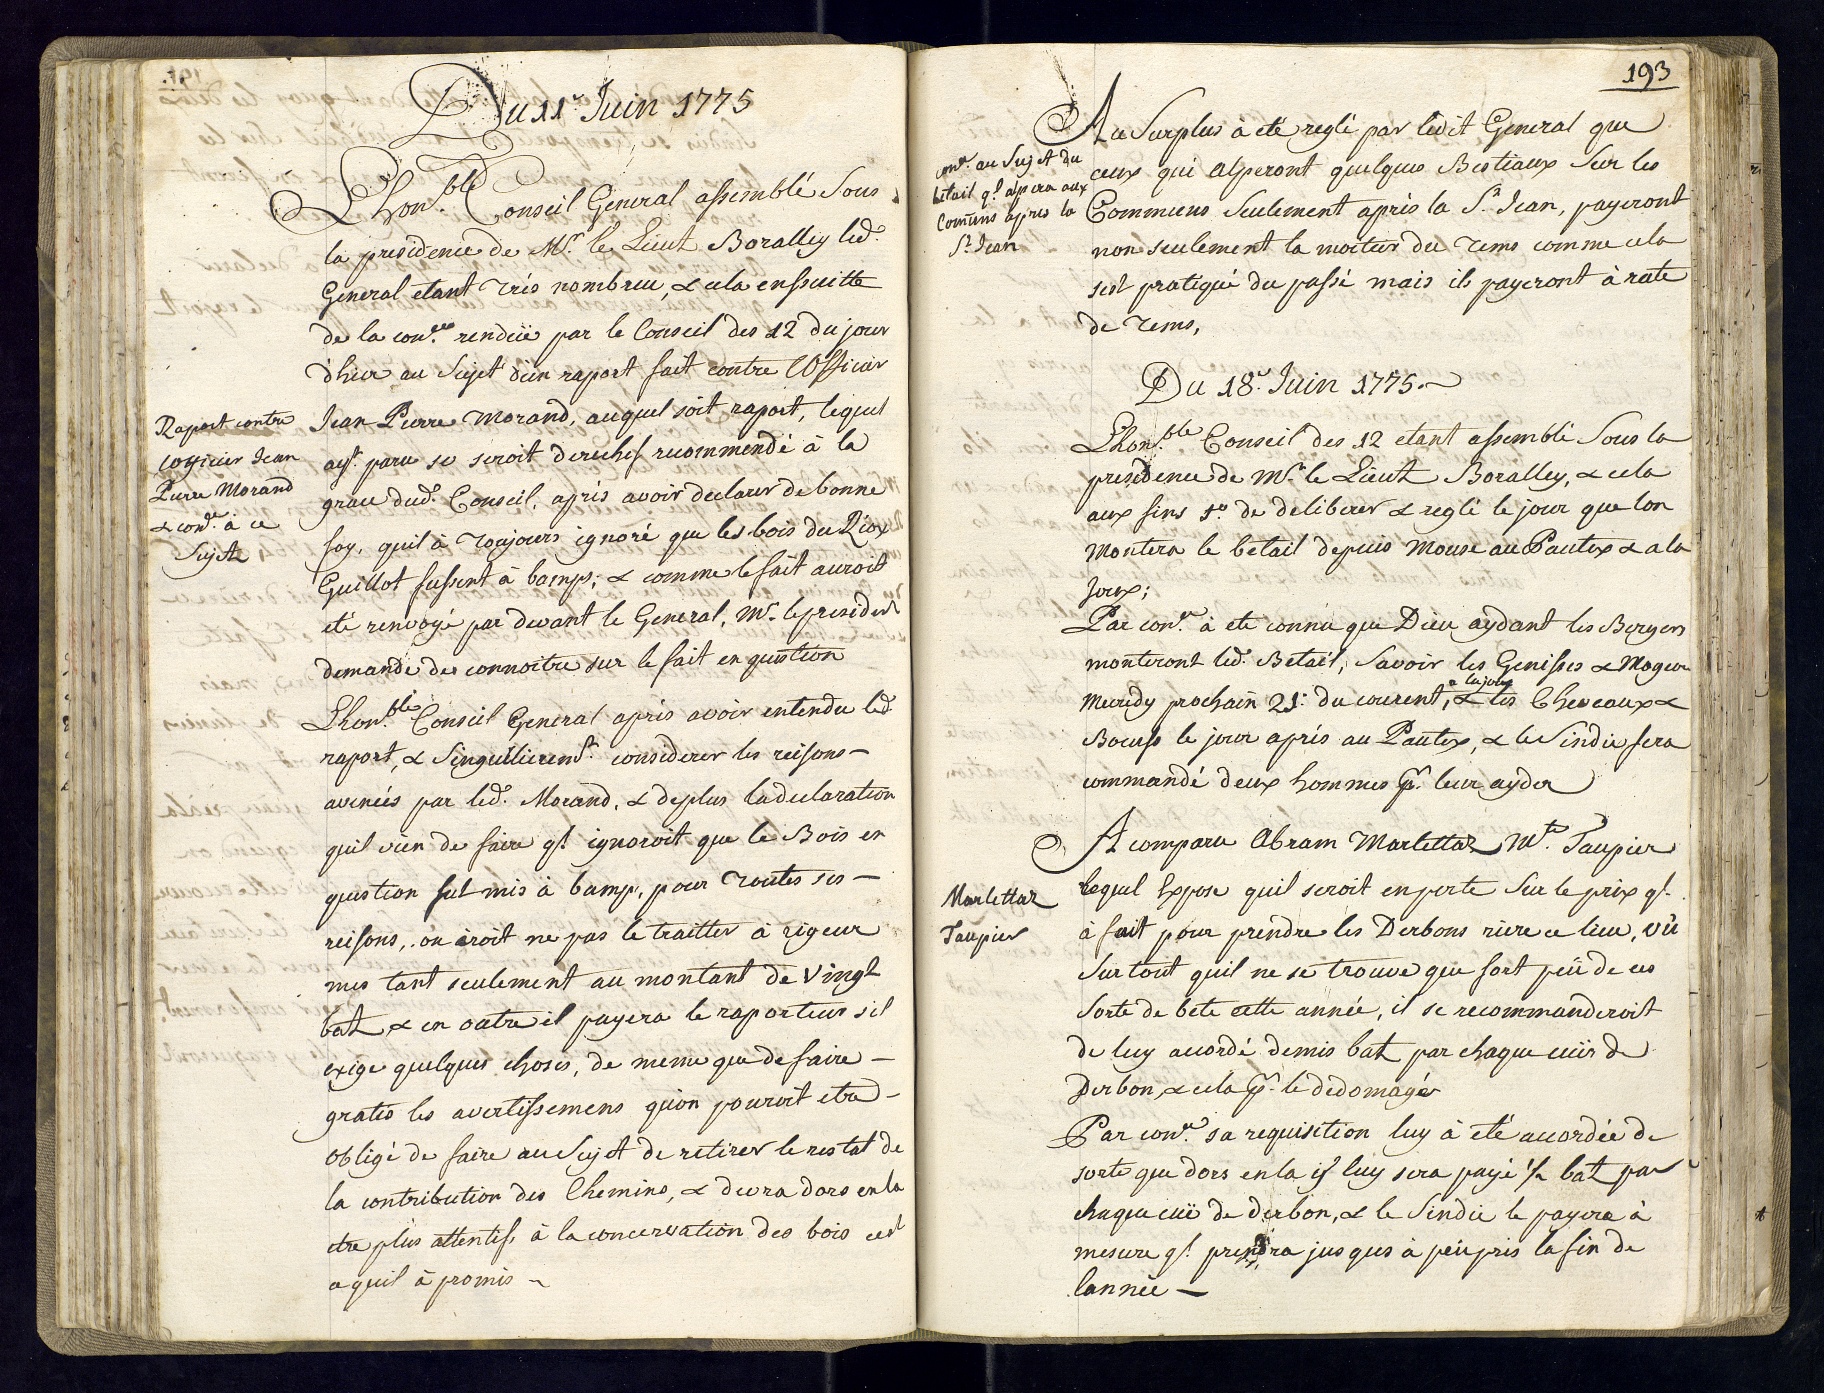 Du 11.e Juin 1775
Lhon.ble Conseil General assemblé Sous
la presidence de Mr. le Lieut Boralley led.
General etant trés nombreu, & cela ensuitte
de la con.ce rendüe par le Conseil des 12 du jour
d'hier au Sujet d'un raport fait contre lOfficier
Jean Pierre Morand, auquel soit raport, lequel
ayt. paru se seroit derechef recommendé à la
grace dud. Conseil, aprés avoir declarer de bonne
foy, quil à toujours ignoré que les bois du Riox
Guillot fussent à bamps; & comme le fait auroit
eté renvoyé par devant le General, Mr. le president
demande de connoitre sur le fait en question
Lhon.ble Conseil General aprés avoir entendu led
raport, & Singulierem.t considerer les reisons
avencés par led. Morand, & deplus la declaration
quil vien de faire ql. ignoroit que le Bois en
question fut mis à bamp, pour toutes ses
reisons, on croit ne pas le traitter à rigeur
mes tant seulement au montant de Vingt
batz & en outre il payera le raporteur s'il
exige quelques choses, de meme que de faire
gratis les avertissemens quon pouroit etre
obligé de faire au Sujet de retirer le restat de
la contribution des Chemins, & devra dors en la
etre plus attentif à la concervation des bois cest
a quil à promis
Raport contre
lofficier Jean
Pierre Morand
& con.ce à ce
Sujet
193
Au Surplus à eté reglé par ledit General que
ceux qui alperont quelques Bestiaux Sur les
Commeuns seulement aprés la St. Jean, payeront
non seulement la moitier du tems comme cela
sest pratiqué du passé mais ils payeront à rate
de tems,
con.ce au Sujet du
betail ql. alpera aux
Comuns apres la
St. Jean
Du 18.e Juin 1775.
Lhon.ble Conseil des 12 etant assemblé Sous la
presidence de Mr. le Lieut Boralley, & cela
aux fins 1o. de deliberer & reglé le jour que lon
Montera le betail depuis Mouse au Pautex & a la
Joux;
Par con.ce à eté connu que Dieu aydant les Bergers
monteront led. Betail, Savoir les Genisses & Mogeon
a la joux
Mecredy prochain 21.e du courent, & les Cheveaux &
Boeufs le jour aprés au Pautex, & le Sindic sera
commandé deux hommes pr. leur ayder
A comparu Abram Marlettaz Mtre. Taupier
lequel Expose quil seroit en perte Sur le prix ql.
à fait pour prendre les Derbons riere ce lieu, vû
Surtout quil ne se trouve que fort peü de ces
Sorte de bete cette année, il se recommanderoit
de luy accordé demis batz par chaque cuir de
Derbon, & cela pr. le dedomagér
Par con.ce sa requisition luy à eté accordée de
sorte que dors en la il luy sera payé 1/2 batz par
chaque cuïr de derbon, & le Sindic le payera à
mesure ql. prendra jusques à peü prés la fin de
lannée
Marlettaz
Taupier